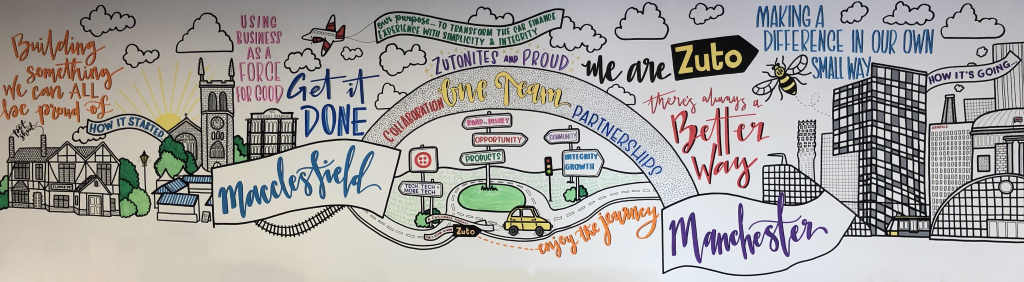 Building
something
we can ALL
be proud of
HOW IT STARTED
USING
BUSINESS
AS A
FORCE
FOR GOOD
Get it
DONE
Macclesfield
OUR PURPOSE... TO TRANSFORM THE CAR FINANCE
EXPERIENCE WITH SIMPLICITY & INTEGRITY
ZUTONITES AND PROUD
COLLABORATION
One Team
PARTNERSHIPS
ROAD TO DISNEY
OPPORTUNITY
PRODUCTS
COMMUNITY
INTEGRITY
GROWTH
TECH TECH +
MORE TECH
Zuto
enjoy the journey
we are Zuto
MAKING A
DIFFERENCE IN OUR OWN
SMALL WAY
there's always a
Better
Way
HOW IT'S GOING...
Manchester